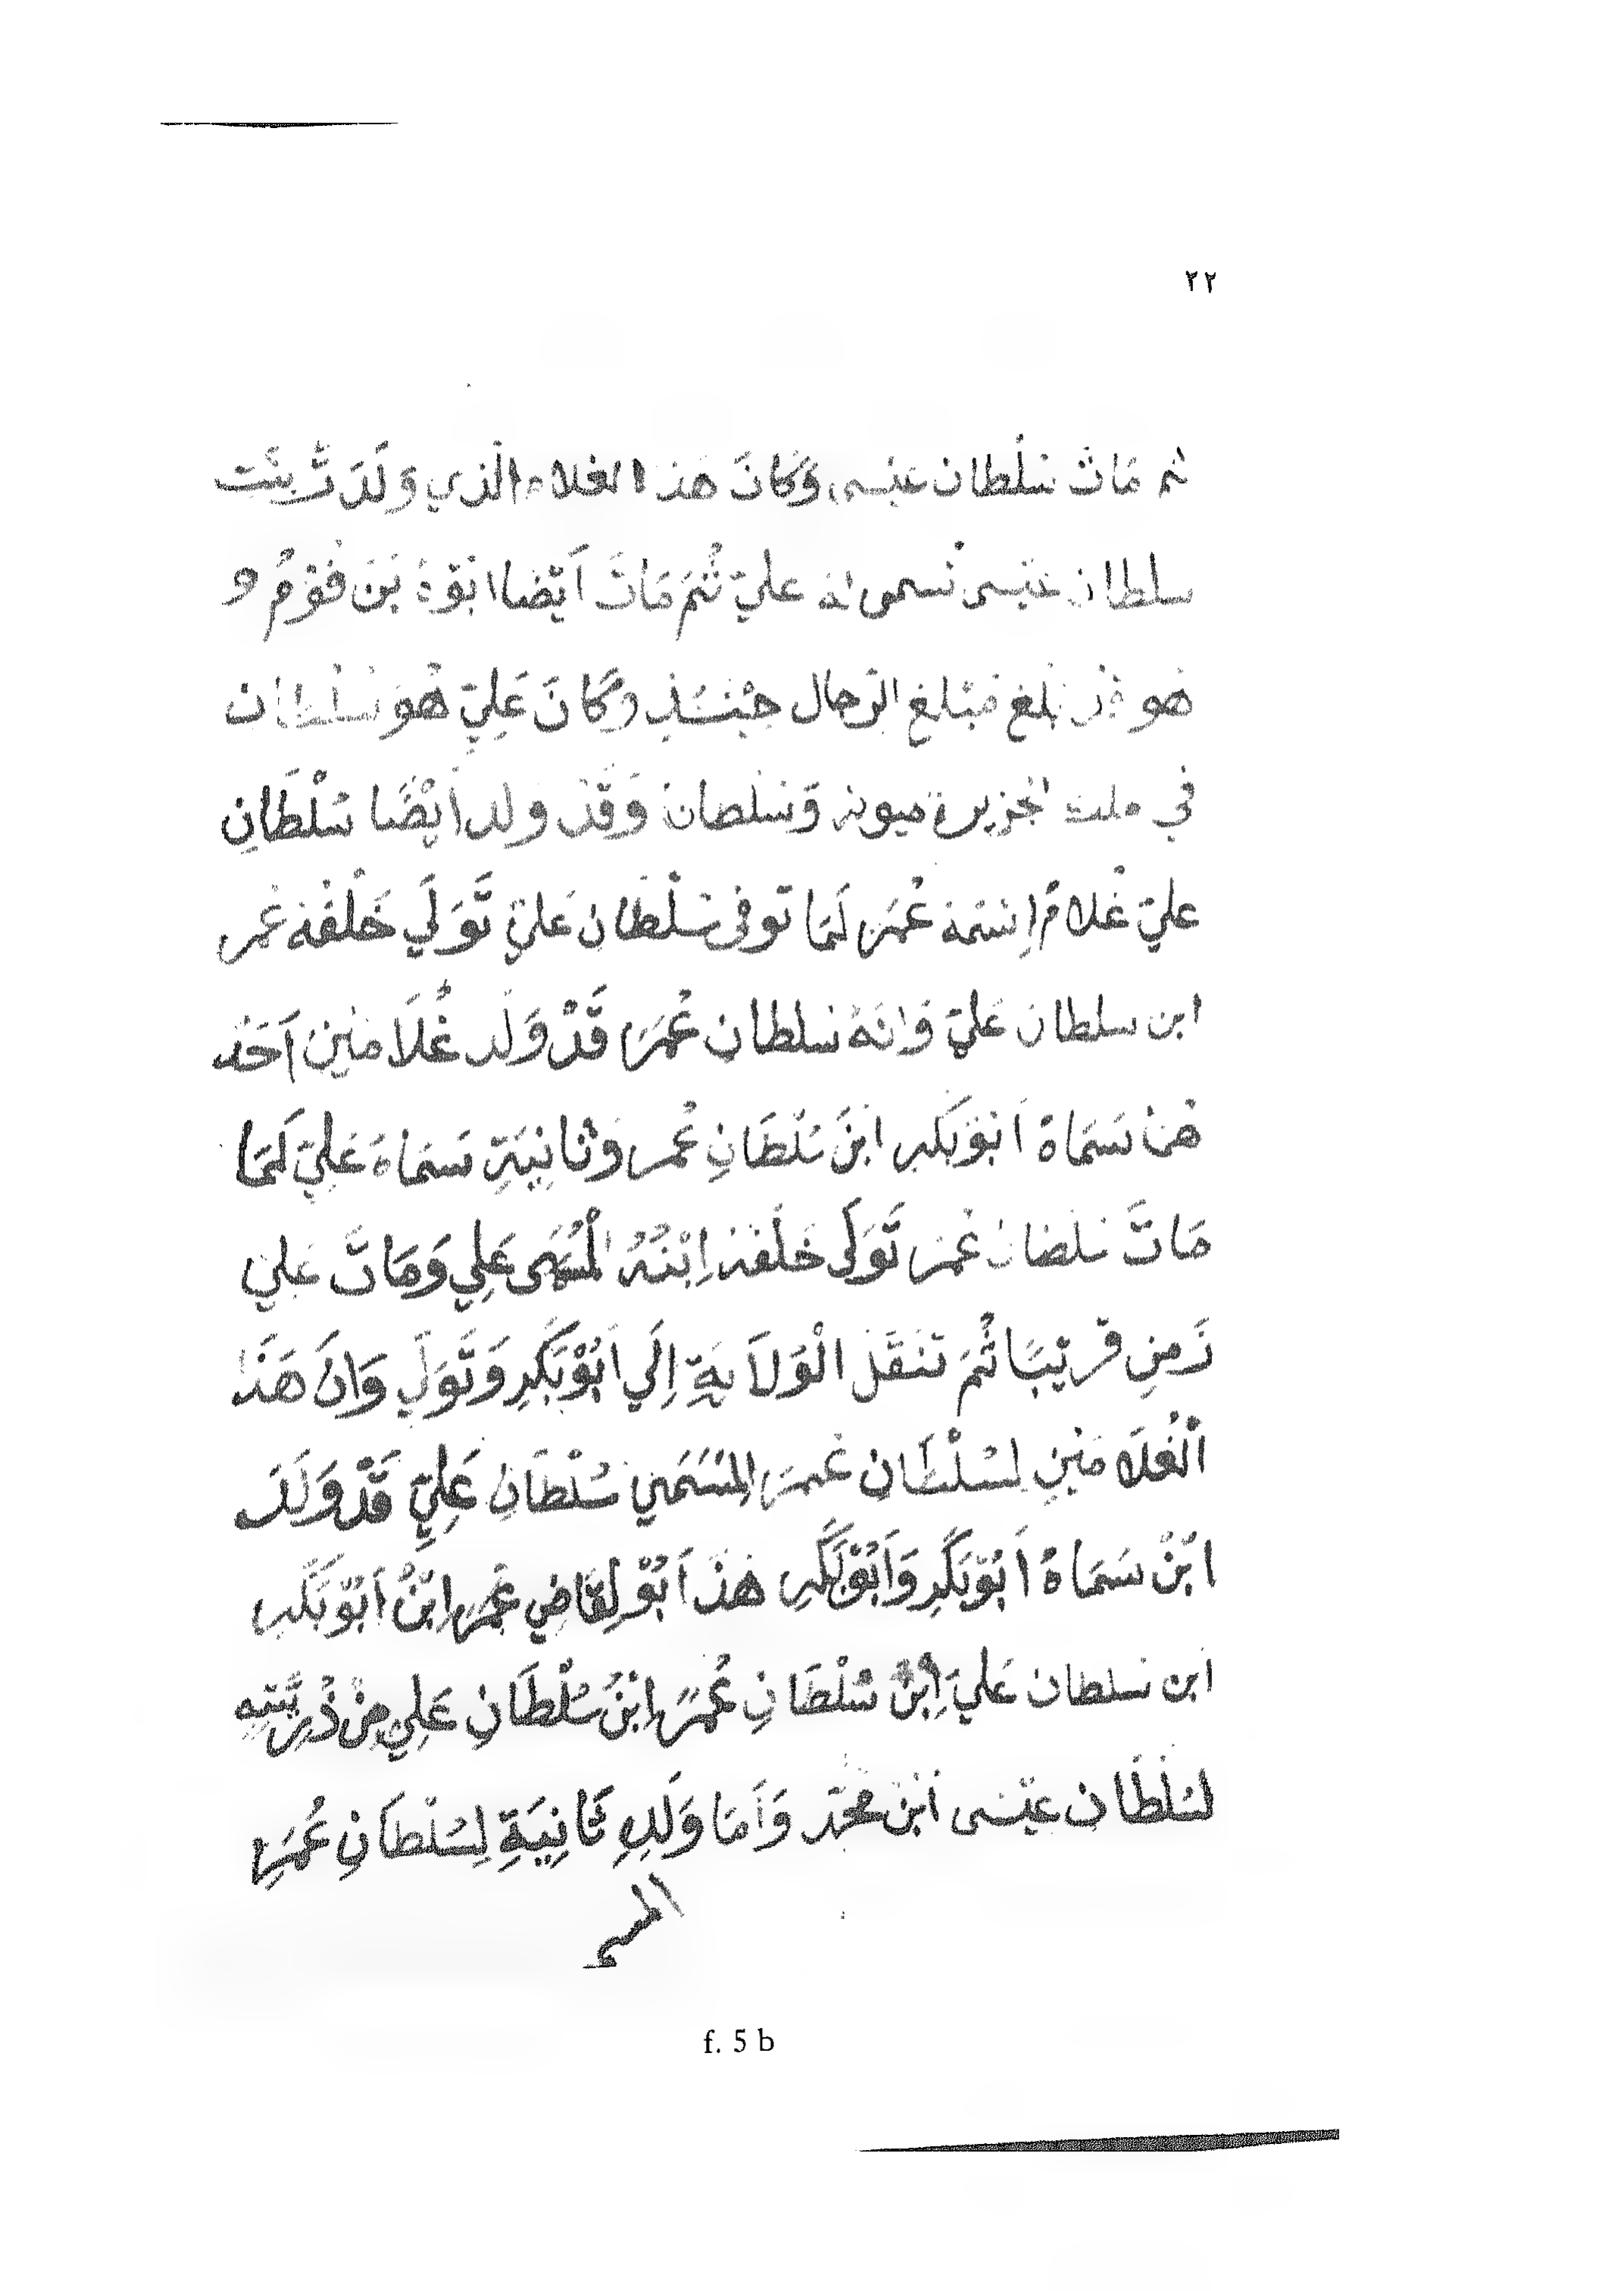 ٢٢
ثم مَاتَ سُلْطان عيْسى وَكَانَ هذا الغلام الّذي وَلَدَتْ بِنْت
سلطان عيْسى تسمى انه عليّ ثُمَ مَاتَ اَيْضا ابوْهُ بَنَ فُوْمُ و
هو قد بلغ مَبْلغ الرّجال حِيْنَئِذٍ وكَانَ عَلِيّ هُوَ سلطان
في ملك الجزيرة ميوته وَسلطان وَقَدْ ولد اَيْضًا سُلْطَانِ
عليّ غُلامٌ اِسْمَهُ عُمَرَ لَمَا توفى سُلْطان عَليّ تَوَلَي خَلْفَهُ عُمر
ابن سلطان عَليّ وَانَهُ سلطان عُمَرَ قَدْ وَلَد غُلَامَيْنِ اَحَدُ
هُمَا سَمَاهُ اَبُوْبَكرِ ابْنَ سُلْطَانِ عُمر وَثَانِيَةِ سَمَاهَ عَلِيّ لَمَا
مَاتَ سُلْطَان عُمَر تَوَلَى خَلْفَهُ اِبْنُهُ الْمُسَمَى عَلِي وَمَاتَ عَلي
زَمِنِ قَرِيْبًا ثُمَ تَنقَل الْوَلَايَةِ اِلَي اَبُوْبَكَرِ وَتَوَلَي وَانَ هَذَا
اْلغُلَامَيْنِ لسُلْطَان عُمَرَ الْمُسَمَي سُلْطَانِ عَلِيّ قَدْ وَلَدَ
ابْنُ سَمَاهُ اَبُوْبَكَرِ وَاَبُوْبَكَرِ هَذَ اَبُوْ لِقَاضِي عُمَرِ ابْنُ اَبُوْبَكَرِ
ابن سلطان عَليّ اِبْنُ سُلْطَانِ عُمَرَ ابْنُ سُلْطَانِ عَلِي مِنْ ذُرِيَّتِهِ
لسُلْطَان عيْسى ابْن محمّد وَاَمَا وَلَدِ ثَانِيَةِ لِسُلْطَانِ عُمَرِ
المسمى
f. 5 b